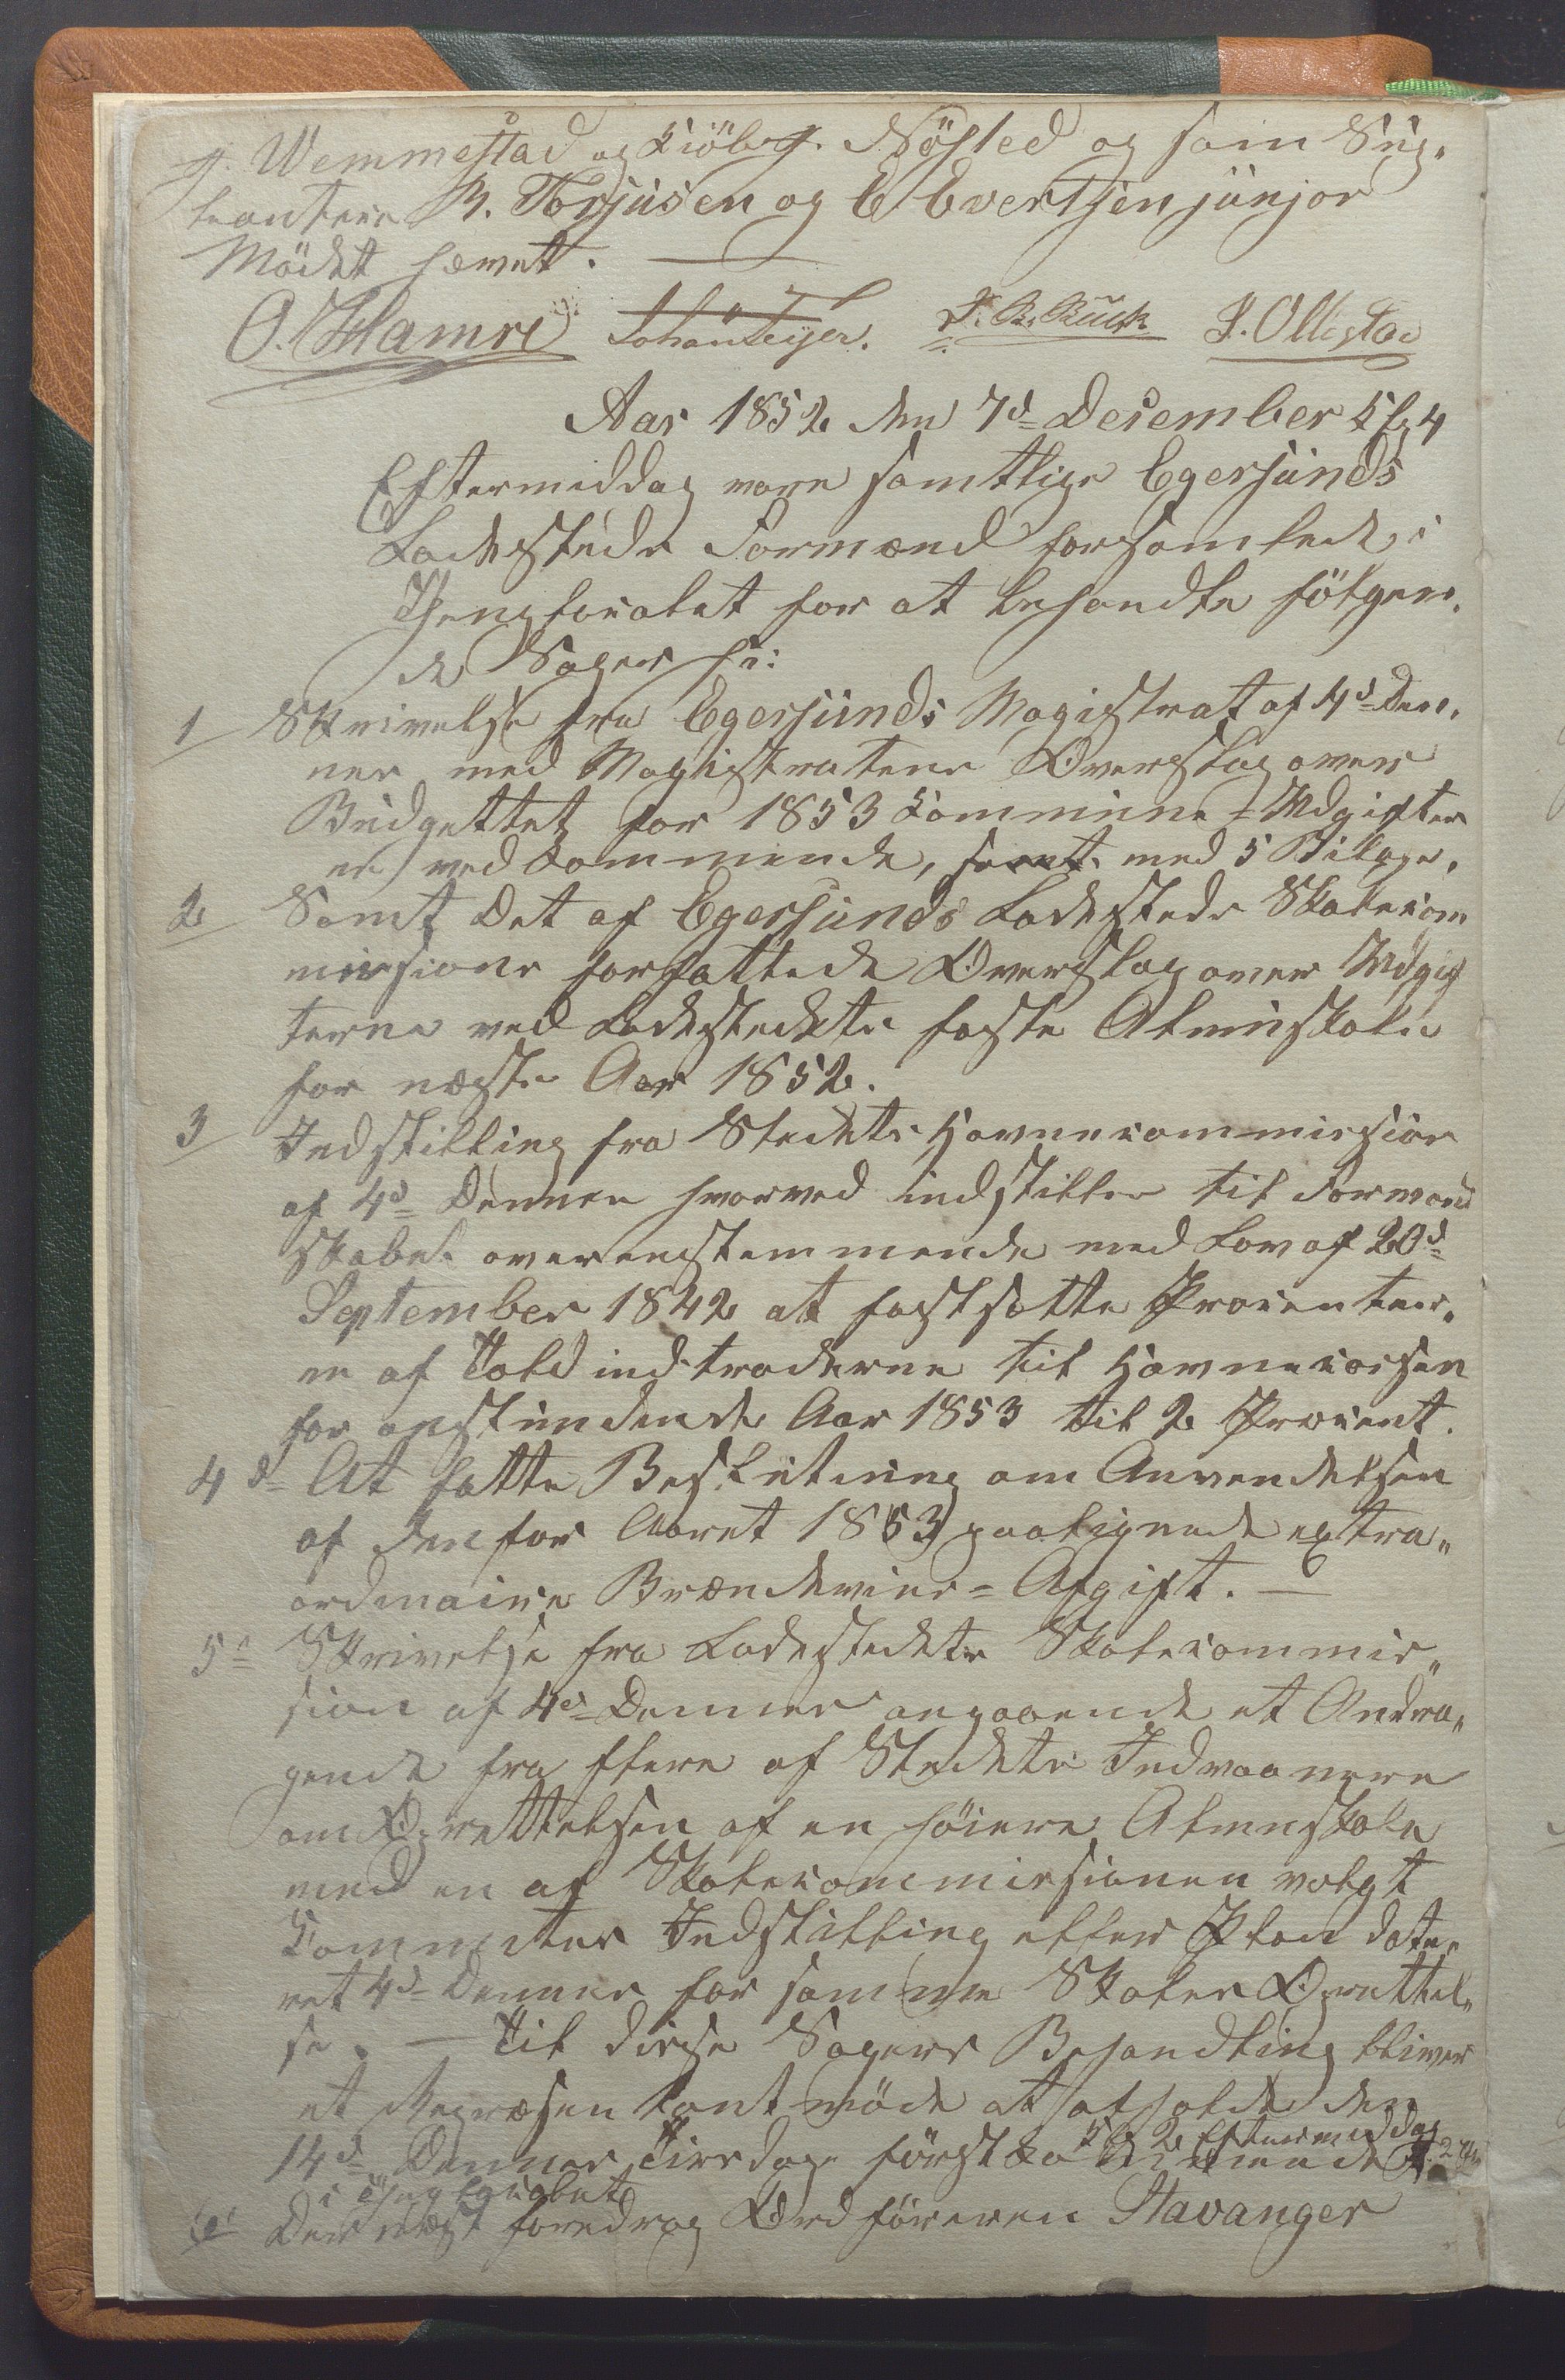 g. Wemmestad og Kiöbm. Nösted og som Sup„
leanterne B. Torjusen og E Evertsen junjor
Mödet hævet. —
O. Hamre Johan Feyer. P. R. Puck P. Ollestad
Aar 1852 den 7d= December Kl. 4
Eftermiddag vare samtlige Egersunds
Ladesteds Formænd forsamlede i
Thinglocalet for at behandle følgen„
de Sager s:
1 Skrivelse fra Egersunds Magistrat af 4d= Den„
nes med Magistratens Overslag over
Budgettet for 1853 Kommune=Udgifter
ne vedkommende, samt med 5 Bilage.
2 Samt Det af Egersunds Ladesteds Skolecom
missions forfattede Overslag over Udgif
terne ved Ladestedets faste Almuskole
for næste Aar 1852.
3 Indstilling fra Stedets Havnecommission
af 4d= Dennes hvorved indstilles til Formand
skabet overenstemmende med Lov af 20d=
September 1842 at fastsatte Procenter„
ne af Toldindtraderne til Havnecassen
for anstundende Aar 1853 til 2 Procent.
4d= At fatte Beslutning om Anvendelsen
af den for Aaret 1853 paalignede extra„
ordinaire Brændeviins=Afgift. —
5= Skrivelse fra Ladestedets Skolecommis„
sion af 4d= Dennes angaaende et Andra„
gende fra flere af Stedets Indvaanere
om Oprettelsen af en høiere Almuskole
med en af Skolecommissionen valgt
Kommitees Indstilling eller Plan date„
ret 4d= Dennes for samme Skoles Oprettel„
se. — Til disse Sagers Behandling bliver
et Repræsentantmöde at afholde den
14d= Dennes Tirsdage förstko Kl 2 Eftermiddag
i Thinglocalet
Dernæst foredrog Ordföreren Stavanger